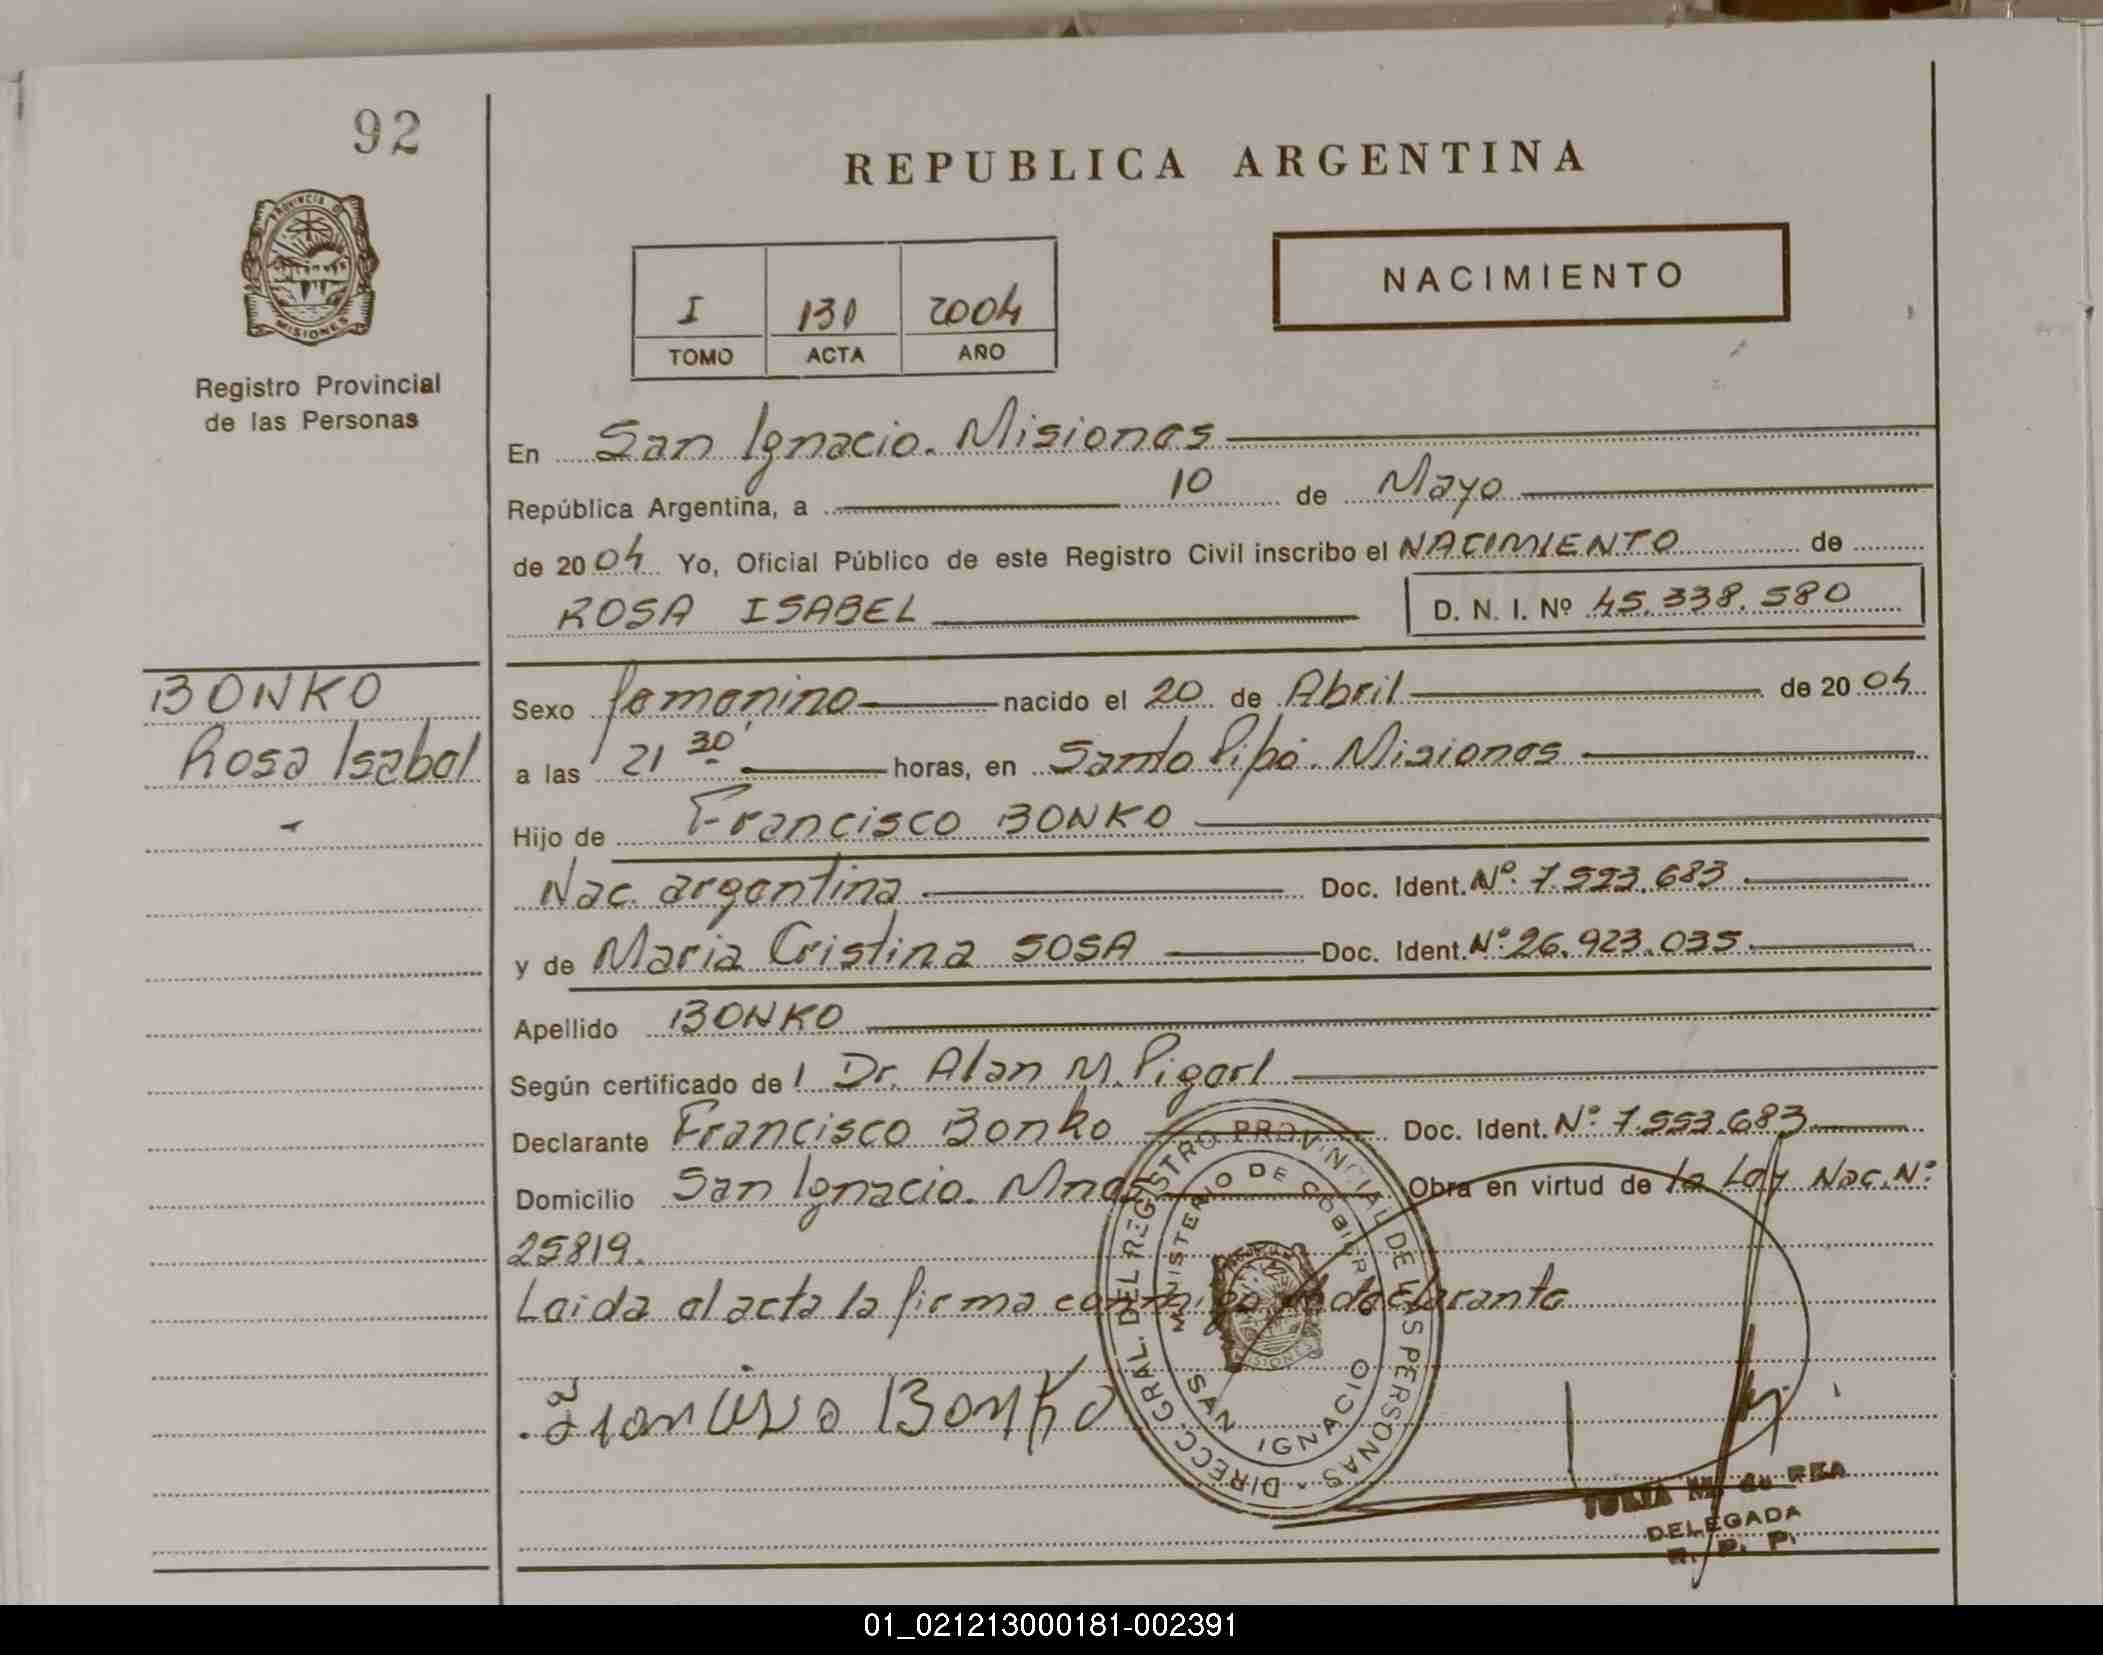 92
REPUBLICA ARGENTINA
PROVINCIA DE
MISIONES
Registro Provincial
de las Personas
I 131 2004
TOMO ACTA AÑO
NACIMIENTO
En San Ignacio. Misiones
República Argentina, a 10 de Mayo
de 2004 Yo, Oficial Público de este Registro Civil inscribo el NACIMIENTO de
ROSA ISABEL D. N. I. Nº 45.338.580
BONKO
Rosa Isabel
Sexo femenino nacido el 20 de Abril de 2004
a las 21 30' horas, en Santo Pipó. Misiones
Hijo de Francisco BONKO
Nac. argentina Doc. Ident. Nº 7.553.683
y de Maria Cristina SOSA Doc. Ident. Nº 26.923.035
Apellido BONKO
Según certificado de l Dr. Alan M. Pigerl
Declarante Francisco Bonko Doc. Ident. Nº 7.553.683
Domicilio San Ignacio. Mnes Obra en virtud de la Ley Nac. Nº
25819.
Leida el acta la firma conmigo el declarante
Francisco Bonko
DIRECC. GRAL. DEL REGISTRO PROVINCIAL DE LAS PERSONAS
MINISTERIO DE GOBIERNO
SAN IGNACIO
MISIONES
DELEGADA
R. P. P.
01_021213000181-002391